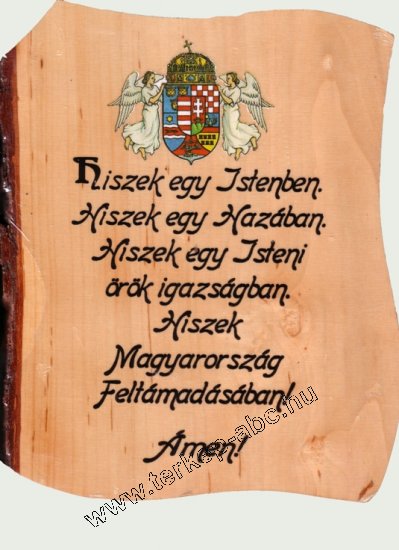 Hiszek egy Istenben.
Hiszek egy Hazában.
Hiszek egy Isteni
örök igazságban.
Hiszek
Magyarország
Feltámadásában!
Ámen!
www.terkep-abc.hu